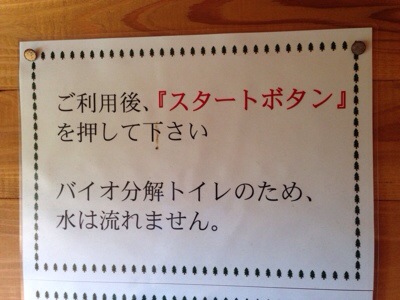 ご利用後、『スタートボタン』
を押して下さい
バイオ分解トイレのため、
水は流れません。